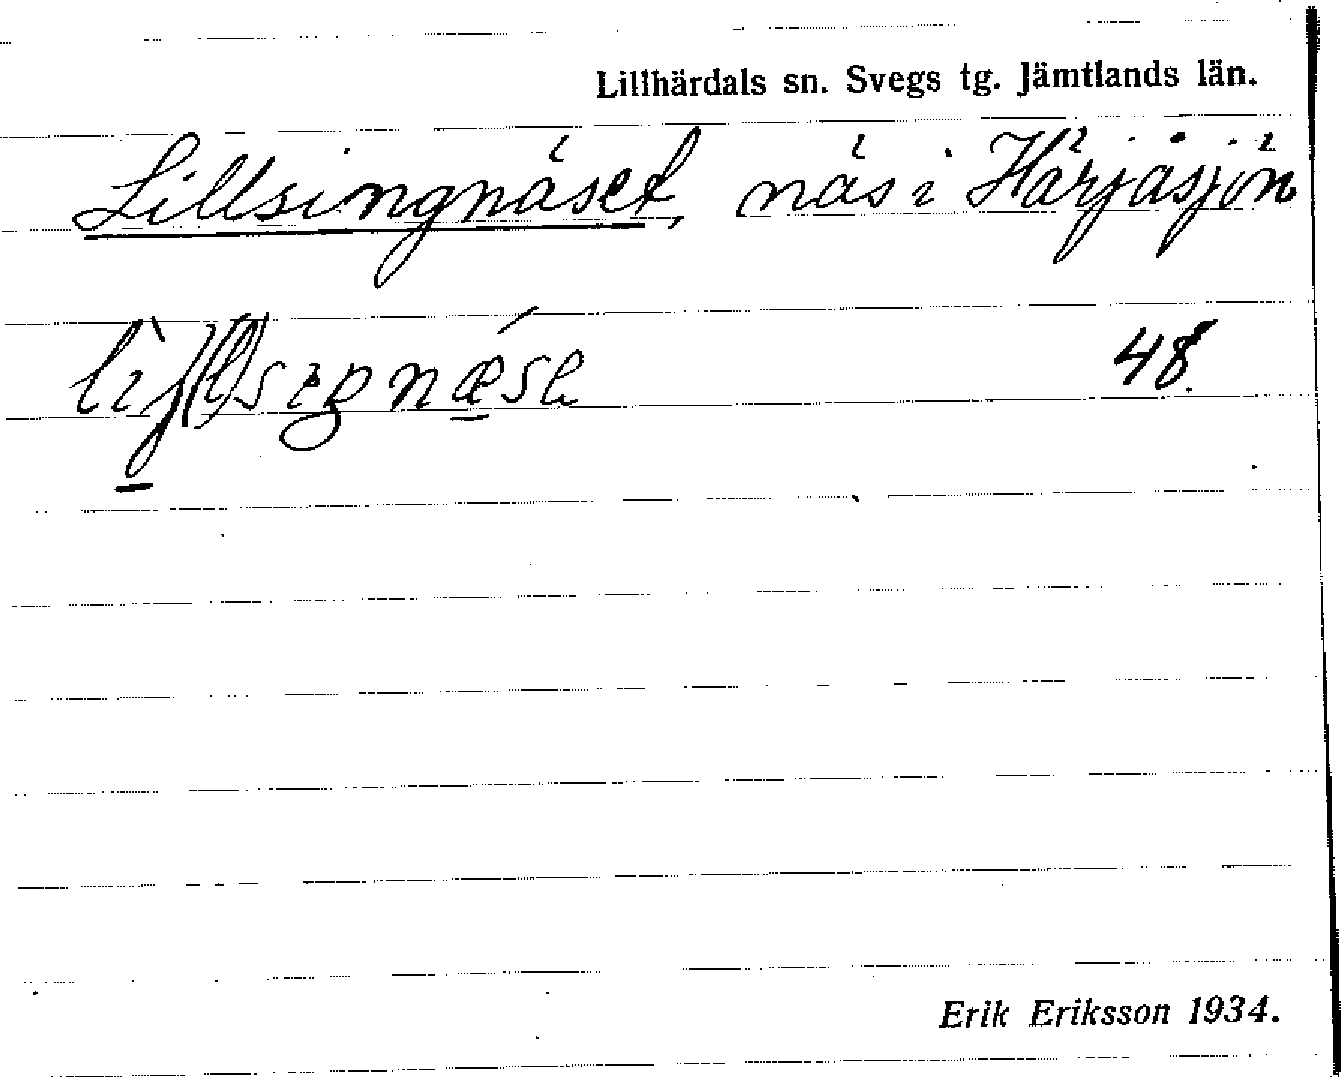 Lillhärdals sn. Svegs tg. Jämtlands län.
Lillsingnäset, näs i Härjåsjön
48.
Erik Eriksson 1934.